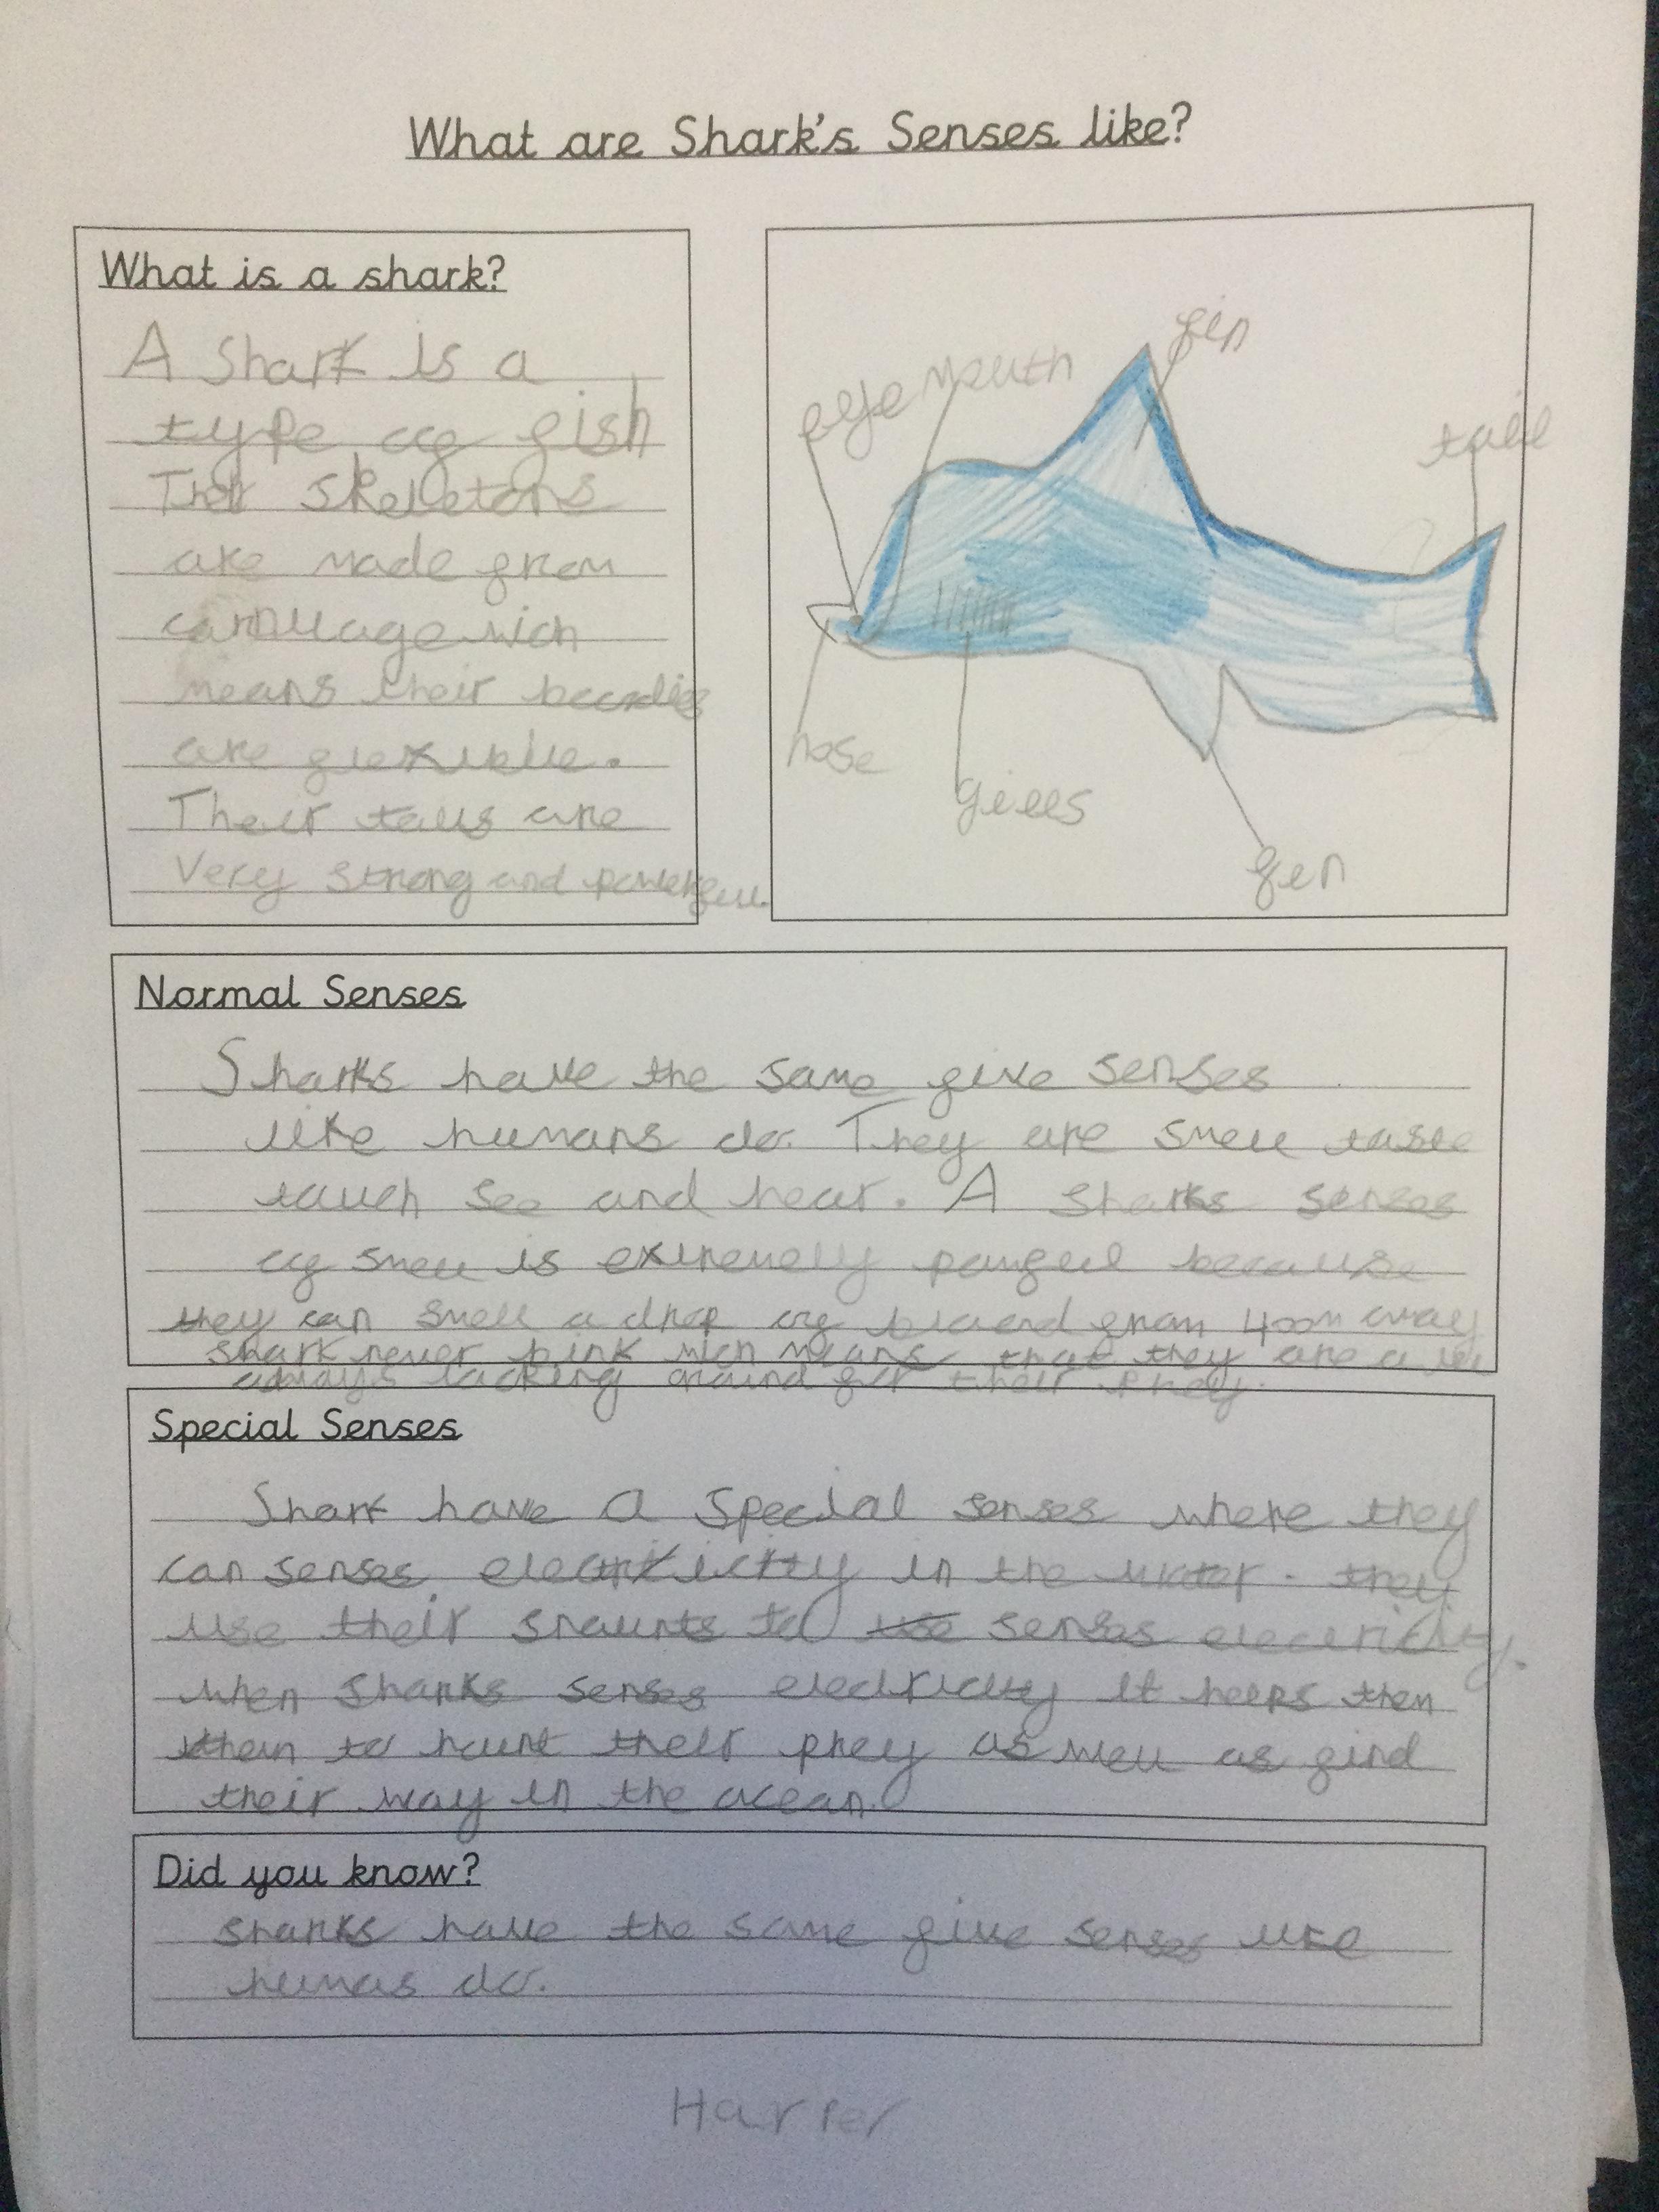 What are Shark's Senses like?
What is a shark?
A Shark is a
type of fish
Their skeletons
are made from
cartilage wich
means their boodies
are flexible.
Their tails are
Very strong and powerful.
eye
mouth
fin
tail
nose
gills
fin
Normal Senses
Sharks have the same five senses
like humans do. They are smell taste
touch see and hear. A sharks senses
of smell is extremelly powful because
they can smell a drop of bloord from 400m away
shark never blink wich means that they are
always looking around for their prey.
Special Senses
Shark have a special senses where they
can senses electricity in the water. they
use their snounts to use senses electricity.
when sharks senses electricity it helps then
them to hount their prey as well as find
their way in the ocean.
Did you know?
sharks have the same five senses like
humas do.
Harper